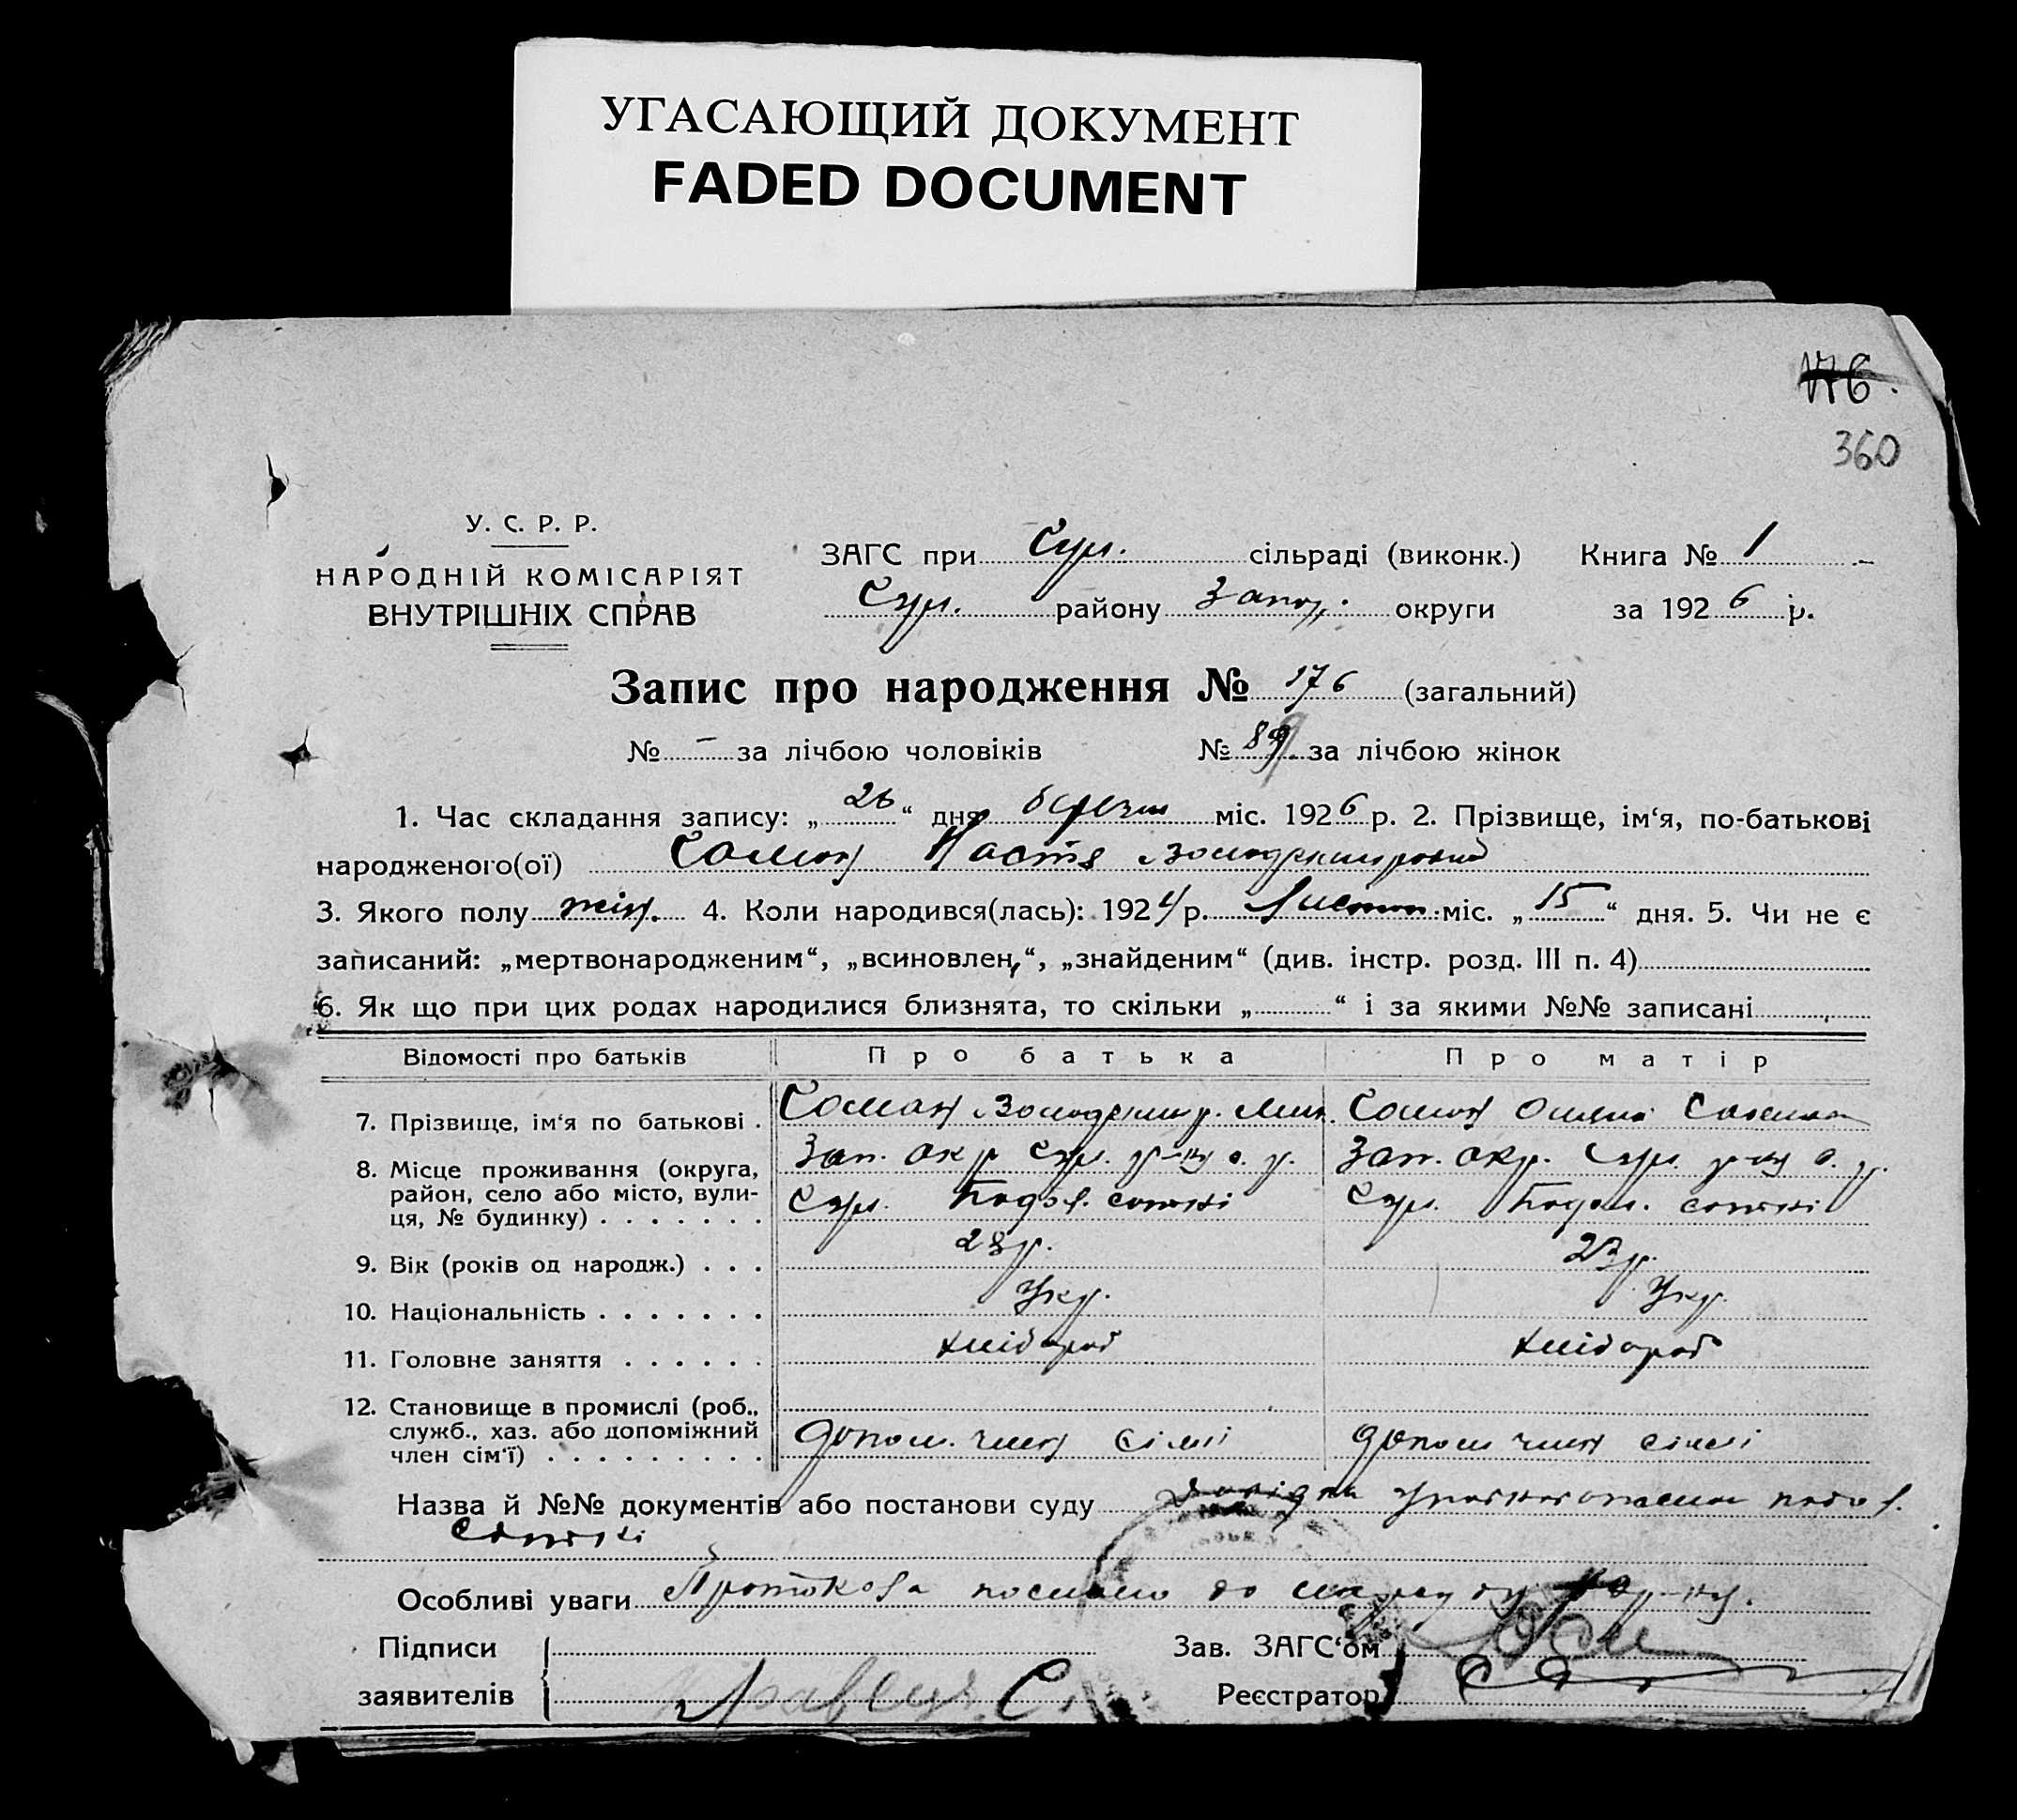 УГАСАЮЩИЙ ДОКУМЕНТ
FADED DOCUMENT
176.
360
У. С. Р. Р.
НАРОДНІЙ КОМІСАРІЯТ
ВНУТРІШНІХ СПРАВ
ЗАГС при сільраді (виконк.) Книга № 1
району Запор. округи за 1926 р.
Запис про народження № 176 (загальний)
№ - за лічбою чоловіків № 89 за лічбою жінок
1. Час складання запису: „26“ дня березня міс. 1926 р. 2. Прізвище, ім‘я, по-батькові
народженого(ої) Соман Настя
3. Якого полу жін. 4. Коли народився(лась): 1924 р. Листоп. міс. „15“ дня. 5. Чи не є
записаний: „мертвонародженим“, „всиновлен,“, „знайденим“ (див. інстр. розд. III п. 4)
6. Як що при цих родах народилися близнята, то скільки „ “ і за якими №№ записані
Відомості про батьків Про батька Про матір
7. Прізвище, ім‘я по батькові . Соман Соман
8. Місце проживання (округа, Зап. окр р-ну Зап. окр. р-ну
район, село або місто, вули-
ця, № будинку) . . . . . . . сотні сотні
9. Вік (років од народж.) . . . 28 р. 23 р.
10. Національність . . . . . . . Укр. Укр.
11. Головне заняття . . . . . . хлібороб хлібороб
12. Становище в промислі (роб.,
служб., хаз. або допоміжний допом. член сімї допом член сімї
член сім‘ї) . . . . . . . . .
Назва й №№ документів або постанови суду довідка
сотні
Особливі уваги послано до
Підписи Зав. ЗАГС‘ом
заявителів Реєстратор